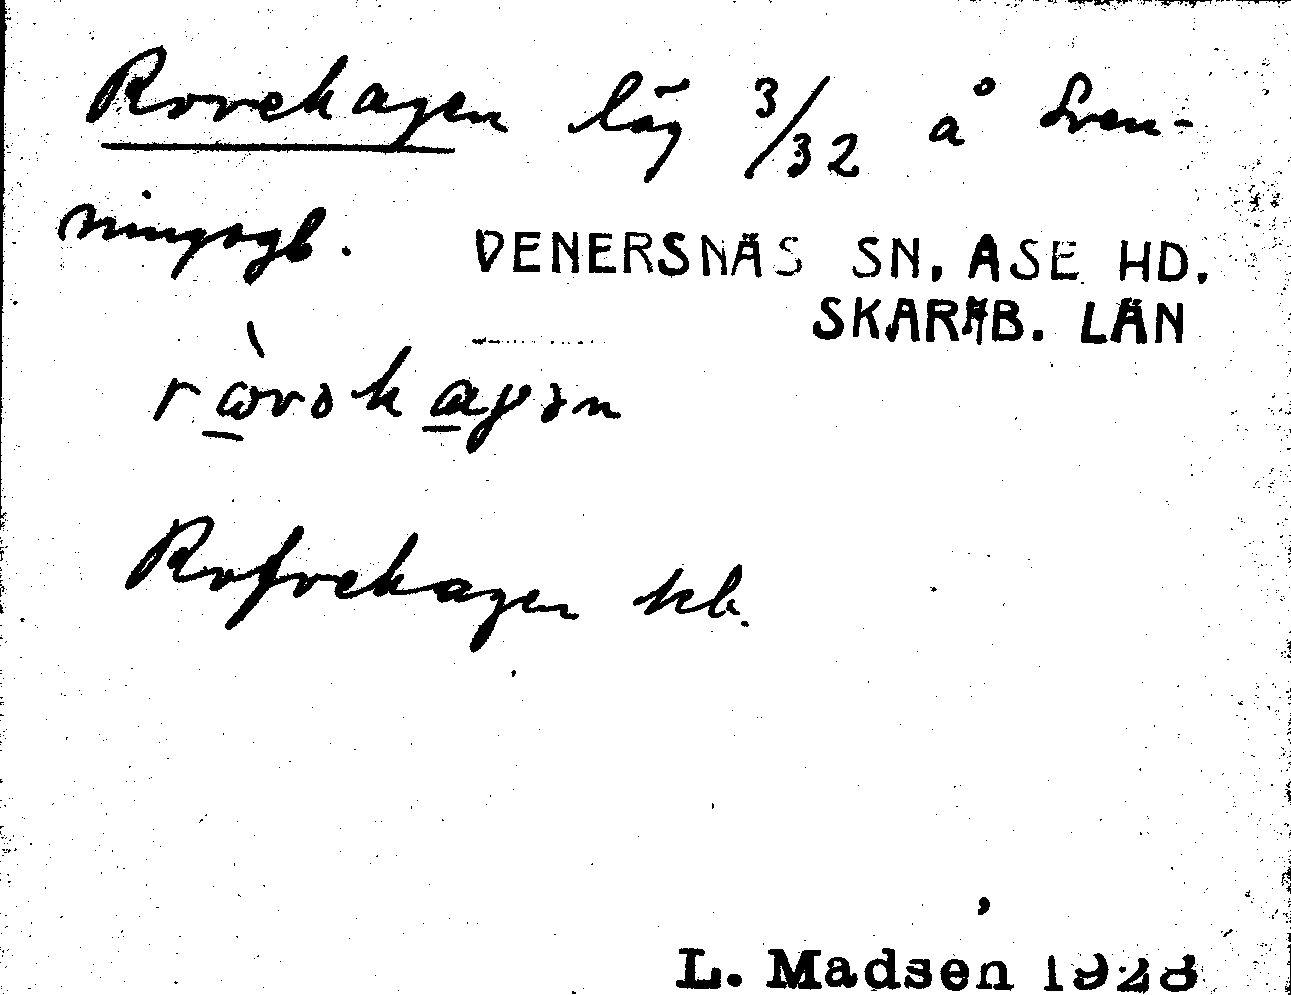 Rovehagen låg 3/32 å Sven-
ningsgb.
VENERSNÄS SN. ASE HD.
SKARAB. LÄN
Rofvehagen kb.
L. Madsen 1928